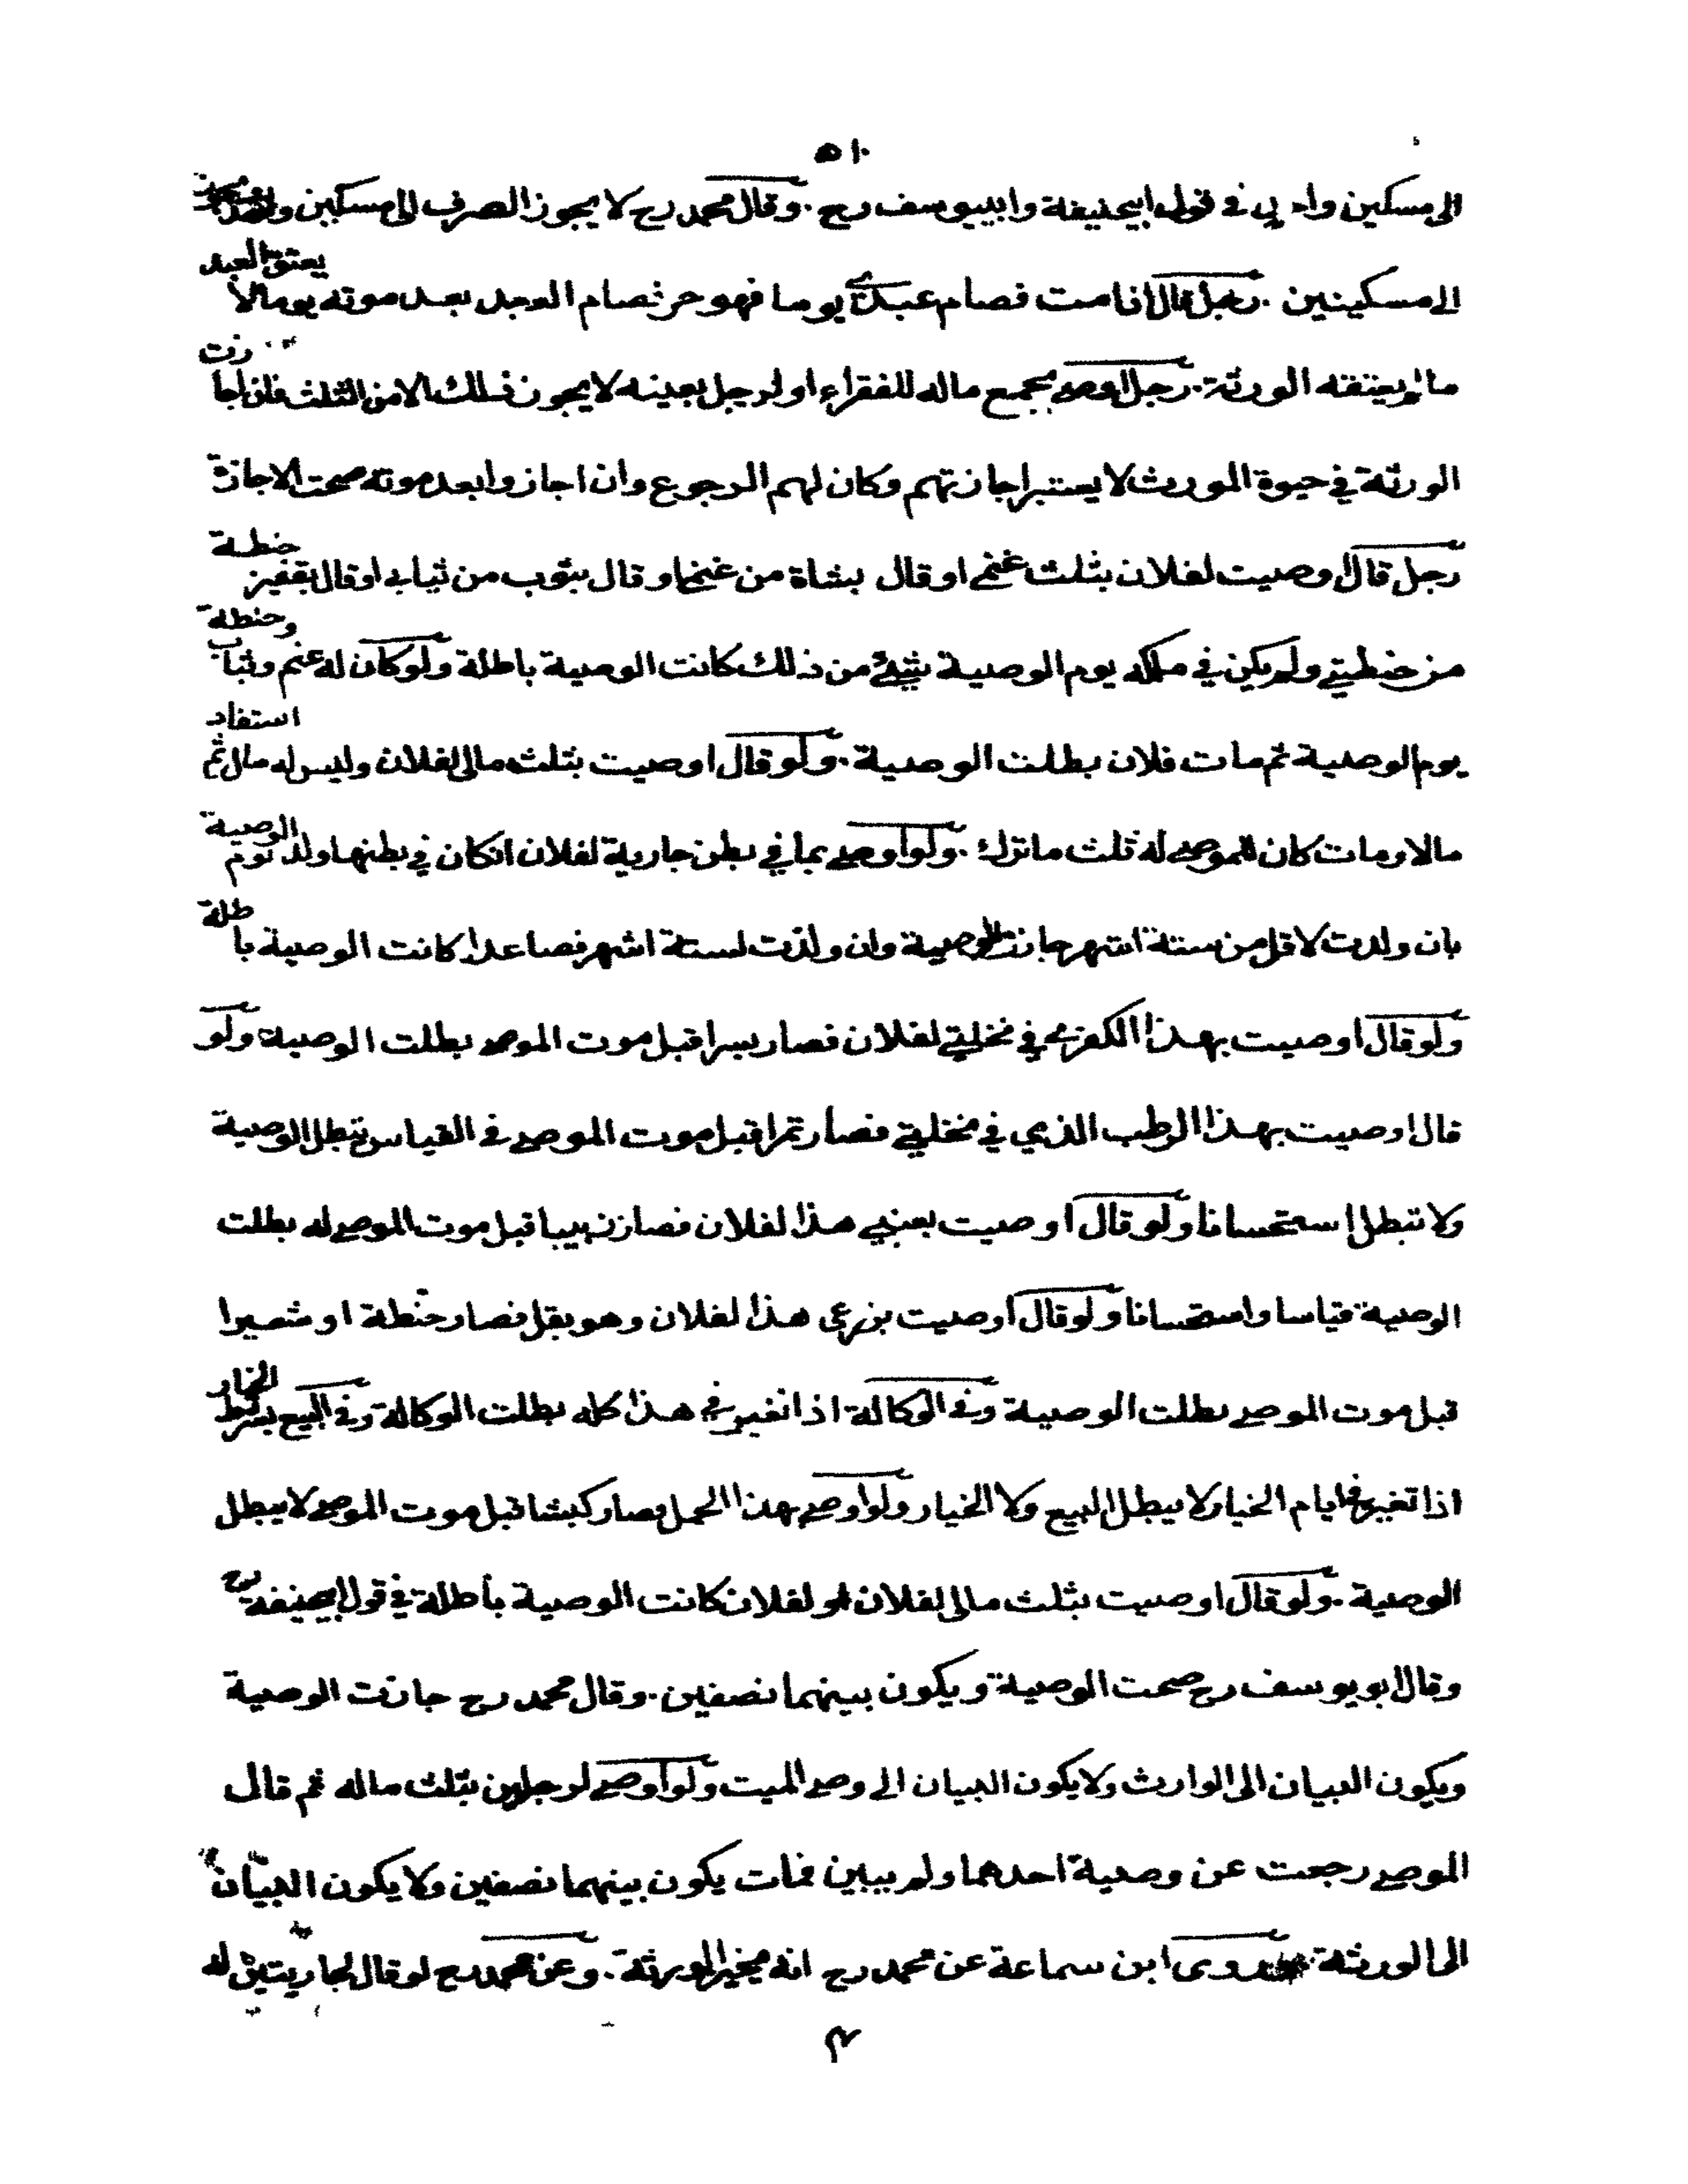 ٥١٠
الى مسكين واحد في قول ابيحنيفة وابييوسف رح . وقال محمد رح لا يجوز الصرف الى مسكين
الى مسكينين . رجل قال اذا مت فصام عبدي يوما فهو حر فصام الرجل بعد موته يوما لا يعتق العبد
مالم يعتقه الورثة . رجل اوصى بجميع ماله للفقراء او لرجل بعينه لا يجوز ذلك الا من الثلث فان اجازت
الورثة في حيوة المورث لا يعتبر اجازتهم وكان لهم الرجوع وان اجازوا بعد موته صحت الاجازة
رجل قال اوصيت لفلان بثلث غنمي او قال بشاة من غنمي او قال بثوب من ثيابي او قال بقفيز حنطة
من حنطتي ولم يكن في ملكه يوم الوصية شئ من ذلك كانت الوصية باطلة ولو كان له غنم وثياب وحنطة
يوم الوصية ثم مات فلان بطلت الوصية . ولو قال اوصيت بثلث مالي لفلان وليس له مال ثم استفاد
مالا ومات كان للموصى له ثلث ما ترك . ولو اوصى بما في بطن جارية لفلان انكان في بطنها ولد يوم الوصية
بان ولدت لاقل من ستة اشهر جازت الوصية وان ولدت لستة اشهر فصاعدا كانت الوصية باطلة
ولو قال اوصيت بهذا الكفرى في نخلتي لفلان فصار بسرا قبل موت الموصى بطلت الوصية ولو
قال اوصيت بهذا الرطب الذي في نخلتي فصار تمرا قبل موت الموصى في القياس تبطل الوصية
ولا تبطل استحسانا ولو قال اوصيت بعنبي هذا لفلان فصار زبيبا قبل موت الموصى له بطلت
الوصية قياسا واستحسانا ولو قال اوصيت بزرعى هذا لفلان وهو بقل فصار حنطة او شعيرا
قبل موت الموصى بطلت الوصية وفي الوكالة اذا تغير في هذا كله بطلت الوكالة وفي البيع بشرط الخيار
اذا تغير في ايام الخيار لا يبطل البيع ولا الخيار ولو اوصى بهذا الحمل فصار كبشا قبل موت الموصى لا يبطل
الوصية . ولو قال اوصيت بثلث مالى لفلان او لفلان كانت الوصية باطلة في قول ابيحنيفة رح
وقال ابو يوسف رح صحت الوصية ويكون بينهما نصفين . وقال محمد رح جازت الوصية
ويكون البيان الى الوارث ولا يكون البيان الى وصى الميت ولو اوصى لرجلين بثلث ماله ثم قال
الموصى رجعت عن وصية احدهما ولم يبين فمات يكون بينهما نصفين ولا يكون البيان
الى الورثة وروى ابن سماعة عن محمد رح انه يخير الورثة . وعن محمد رح لو قال لجاريتين له